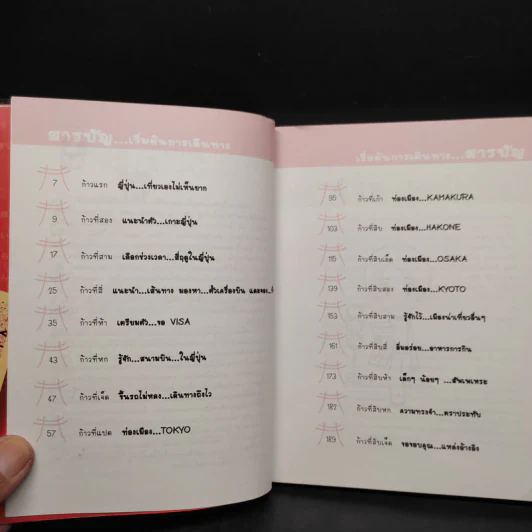 สารบัญ...เริ่มต้นการเดินทาง
7 ก้าวแรก ญี่ปุ่น...เที่ยวเองไม่เห็นยาก
9 ก้าวที่สอง แนะนำตัว...เกาะญี่ปุ่น
17 ก้าวที่สาม เลือกช่วงเวลา...สี่ฤดูในญี่ปุ่น
25 ก้าวที่สี่ แนะนำ...เส้นทาง มองหา...ตั๋วเครื่องบิน และจอง...
35 ก้าวที่ห้า เตรียมตัว...ขอ VISA
43 ก้าวที่หก รู้จัก...สนามบิน...ในญี่ปุ่น
47 ก้าวที่เจ็ด ขึ้นรถไม่หลง...เดินทางถึงไว
57 ก้าวที่แปด ท่องเมือง...TOKYO
เริ่มต้นการเดินทาง...สารบัญ
95 ก้าวที่เก้า ท่องเมือง...KAMAKURA
103 ก้าวที่สิบ ท่องเมือง...HAKONE
115 ก้าวที่สิบเอ็ด ท่องเมือง...OSAKA
139 ก้าวที่สิบสอง ท่องเมือง...KYOTO
153 ก้าวที่สิบสาม รู้จักไว้...เมืองน่าเที่ยวอื่นๆ
161 ก้าวที่สิบสี่ อิ่มอร่อย...อาหารการกิน
173 ก้าวที่สิบห้า เล็กๆ น้อยๆ ...สัพเพเหระ
187 ก้าวที่สิบหก ความทรงจำ...ตราประทับ
189 ก้าวที่สิบเจ็ด ขอขอบคุณ...แหล่งอ้างอิง